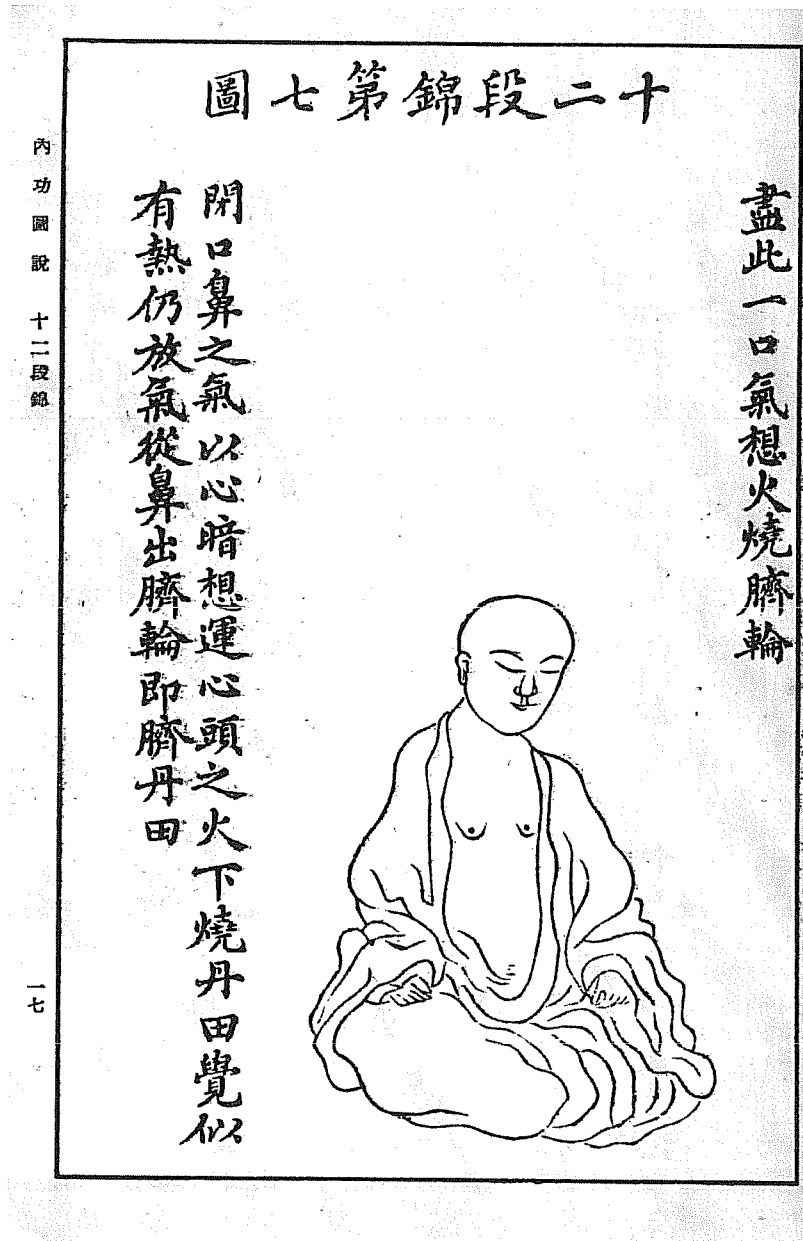 十二段錦第七圖
盡此一口氣想火燒臍輪
閉口鼻之氣以心暗想運心頭之火下燒丹田覺似
有熱仍放氣從鼻出臍輪即臍丹田
內功圖說 十二段錦
一七